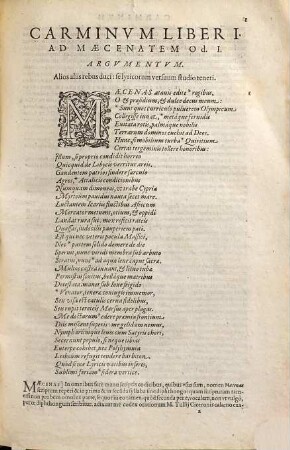 CARMINVM LIBER I.
AD MÆCENATEM Od. I.
ARGVMENTVM.
Alios aliis rebus duci: se lyricorum versuum studio teneri.
MÆCENAS atauis edite regibus,
O & præsidium, & dulce decus meum:
Sunt quos curriculo puluerem Olympicum
Collegisse iuuat, metáque feruidis
Euitata rotis, palmáque nobilis
Terrarum dominos euehit ad Deos.
Hunc, si mobilium turba Quiritium
Certat tergeminis tollere honoribus:
Illum, si proprio condidit horreo
Quicquid de Libycis verritur areis.
Gaudentem patrios findere sarculo
Agros, Attalicis conditionibus
Nunquam dimoueas, vt trabe Cypria
Myrtoum pauidus nauta secet mare.
Luctantem Icariis fluctibus Africum
Mercator metuens, otium, & oppidi
Laudat rura sui: mox reficit rateis
Quassas, indocilis pauperiem pati.
Est qui nec veteris pocula Massici,
Nec partem solido demere de die
Spernit, nunc viridi membra sub arbuto
Stratus, nunc ad aquæ lene caput sacræ.
Multos castra iuuant, & lituo tubæ
Permistus sonitus, bellâque matribus
Detestata. manet sub Ioue frigido
Venator, teneræ coniugis immemor,
Seu visa est catulis cerua fidelibus,
Seu rupit teretes Marsus aper plagas.
Me doctarum hederæ præmia frontium
Diis miscent superis: me gelidum nemus,
Nympharúmque leues cum Satyris chori,
Secernunt populo, si neque tibias
Euterpe cohibet, nec Polyhymnia
Lesboum refugit tendere barbiton.
Quòd si me Lyricis vatibus inseres,
Sublimi feriam sidera vertice.